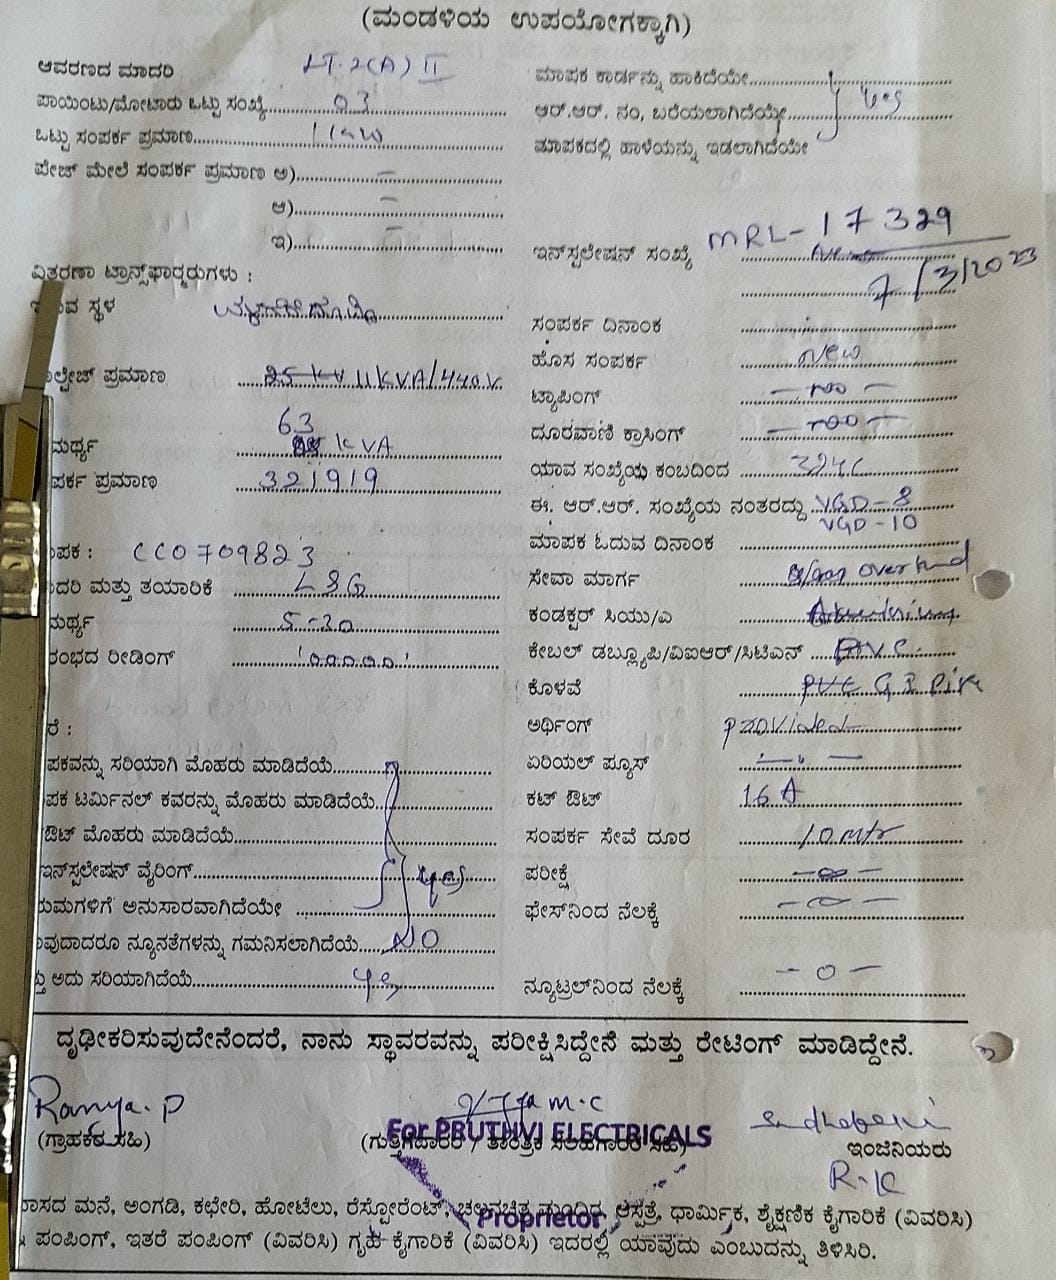 (ಮಂಡಳಿಯ ಉಪಯೋಗಕ್ಕಾಗಿ)
ಆವರಣದ ಮಾದರಿ LT.2(A) II
ಪಾಯಿಂಟು/ಮೋಟಾರು ಒಟ್ಟು ಸಂಖ್ಯೆ 03
ಒಟ್ಟು ಸಂಪರ್ಕ ಪ್ರಮಾಣ 1 KW
ಪೇಜ್ ಮೇಲೆ ಸಂಪರ್ಕ ಪ್ರಮಾಣ ಅ) -
ಆ) -
ಇ) -
ವಿತರಣಾ ಟ್ರಾನ್ಸ್‌ಫಾರ್‍ಮರುಗಳು :
ಇರುವ ಸ್ಥಳ
ಲ್ಟೇಜ್ ಪ್ರಮಾಣ 11 KVA/440.V.
ಮರ್ಥ್ಯ 63 KVA
ಪರ್ಕ ಪ್ರಮಾಣ 321919
ಪಕ : CC0709823
ದರಿ ಮತ್ತು ತಯಾರಿಕೆ L&G
ಮರ್ಥ್ಯ 5-20
ರಂಭದ ರೀಡಿಂಗ್ '00000'
ರೆ :
ಪಕವನ್ನು ಸರಿಯಾಗಿ ಮೊಹರು ಮಾಡಿದೆಯೆ
ಪಕ ಟರ್ಮಿನಲ್ ಕವರನ್ನು ಮೊಹರು ಮಾಡಿದೆಯೆ
ಔಟ್ ಮೊಹರು ಮಾಡಿದೆಯೆ
ಇನ್‌ಸ್ಟಲೇಷನ್ ವೈರಿಂಗ್ yes
ಯಮಗಳಿಗೆ ಅನುಸಾರವಾಗಿದೆಯೇ
ವುದಾದರೂ ನ್ಯೂನತೆಗಳನ್ನು ಗಮನಿಸಲಾಗಿದೆಯೆ NO
ತ್ತು ಅದು ಸರಿಯಾಗಿದೆಯೆ yes
ಮಾಪಕ ಕಾರ್ಡನ್ನು ಹಾಕಿದೆಯೇ
ಆರ್.ಆರ್. ನಂ, ಬರೆಯಲಾಗಿದೆಯೇ yes
ಮಾಪಕದಲ್ಲಿ ಹಾಳೆಯನ್ನು ಇಡಲಾಗಿದೆಯೇ
ಇನ್‌ಸ್ಟಲೇಷನ್ ಸಂಖ್ಯೆ MRL-17329
7/3/2023
ಸಂಪರ್ಕ ದಿನಾಂಕ
ಹೊಸ ಸಂಪರ್ಕ New
ಟ್ಯಾಪಿಂಗ್
ದೂರವಾಣಿ ಕ್ರಾಸಿಂಗ್
ಯಾವ ಸಂಖ್ಯೆಯ ಕಂಬದಿಂದ
ಈ. ಆರ್.ಆರ್. ಸಂಖ್ಯೆಯ ನಂತರದ್ದು VGD-8
VGD-10
ಮಾಪಕ ಓದುವ ದಿನಾಂಕ
ಸೇವಾ ಮಾರ್ಗ over head
ಕಂಡಕ್ಟರ್ ಸಿಯು/ಎ
ಕೇಬಲ್ ಡಬ್ಲ್ಯೂಪಿ/ವಿಐಆರ್/ಸಿಟಿಎಸ್ PVC
ಕೊಳವೆ PVC G I Pipe
ಅರ್ಥಿಂಗ್ provided
ಏರಿಯಲ್ ಫ್ಯೂಸ್
ಕಟ್ ಔಟ್ 16 A
ಸಂಪರ್ಕ ಸೇವೆ ದೂರ 10 mtr
ಪರೀಕ್ಷೆ
ಫೇಸ್‌ನಿಂದ ನೆಲಕ್ಕೆ - 0 -
ನ್ಯೂಟ್ರಲ್‌ನಿಂದ ನೆಲಕ್ಕೆ - 0 -
ದೃಢೀಕರಿಸುವುದೇನೆಂದರೆ, ನಾನು ಸ್ಥಾವರವನ್ನು ಪರೀಕ್ಷಿಸಿದ್ದೇನೆ ಮತ್ತು ರೇಟಿಂಗ್ ಮಾಡಿದ್ದೇನೆ.
Ramya. P
(ಗ್ರಾಹಕರ ಸಹಿ)
M.C
For PRUTHVI ELECTRICALS
(ಗುತ್ತಿಗೆದಾರರ / ತಾಂತ್ರಿಕ ಸಲಹೆಗಾರರ ಸಹಿ)
ಇಂಜಿನಿಯರು
R.K
Proprietor
ವಾಸದ ಮನೆ, ಅಂಗಡಿ, ಕಛೇರಿ, ಹೋಟೆಲು, ರೆಸ್ಟೋರೆಂಟ್, ಚಲನಚಿತ್ರ ಮಂದಿರ, ಆಸ್ಪತ್ರೆ, ಧಾರ್ಮಿಕ, ಶೈಕ್ಷಣಿಕ ಕೈಗಾರಿಕೆ (ವಿವರಿಸಿ)
ಪಂಪಿಂಗ್, ಇತರೆ ಪಂಪಿಂಗ್ (ವಿವರಿಸಿ) ಗೃಹ ಕೈಗಾರಿಕೆ (ವಿವರಿಸಿ) ಇದರಲ್ಲಿ ಯಾವುದು ಎಂಬುದನ್ನು ತಿಳಿಸಿರಿ.